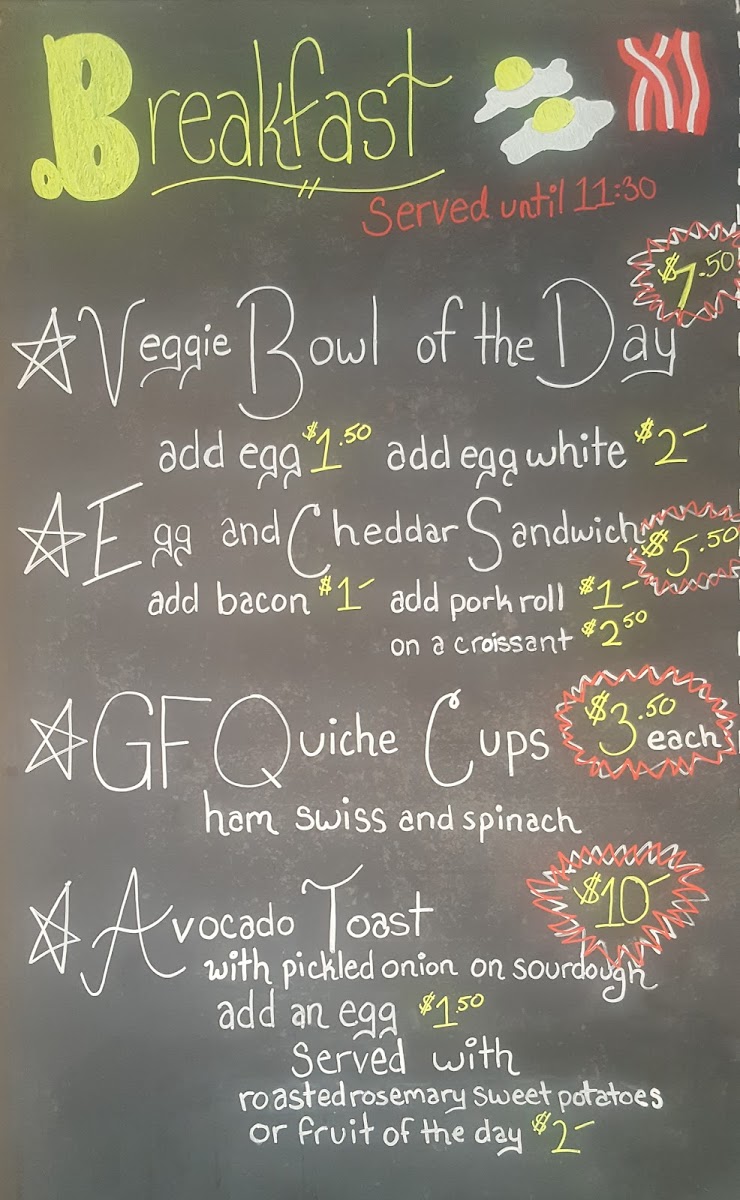 Breakfast
Served until 11:30
$7.50
Veggie Bowl of the Day
add egg $1.50 add egg white $2-
Egg and Cheddar Sandwich $5.50
add bacon $1- add pork roll $1-
on a croissant $2.50
GF Quiche Cups $3.50 each
ham swiss and spinach
Avocado Toast $10-
with pickled onion on sourdough
add an egg $1.50
Served with
roasted rosemary sweet potatoes
or fruit of the day $2-